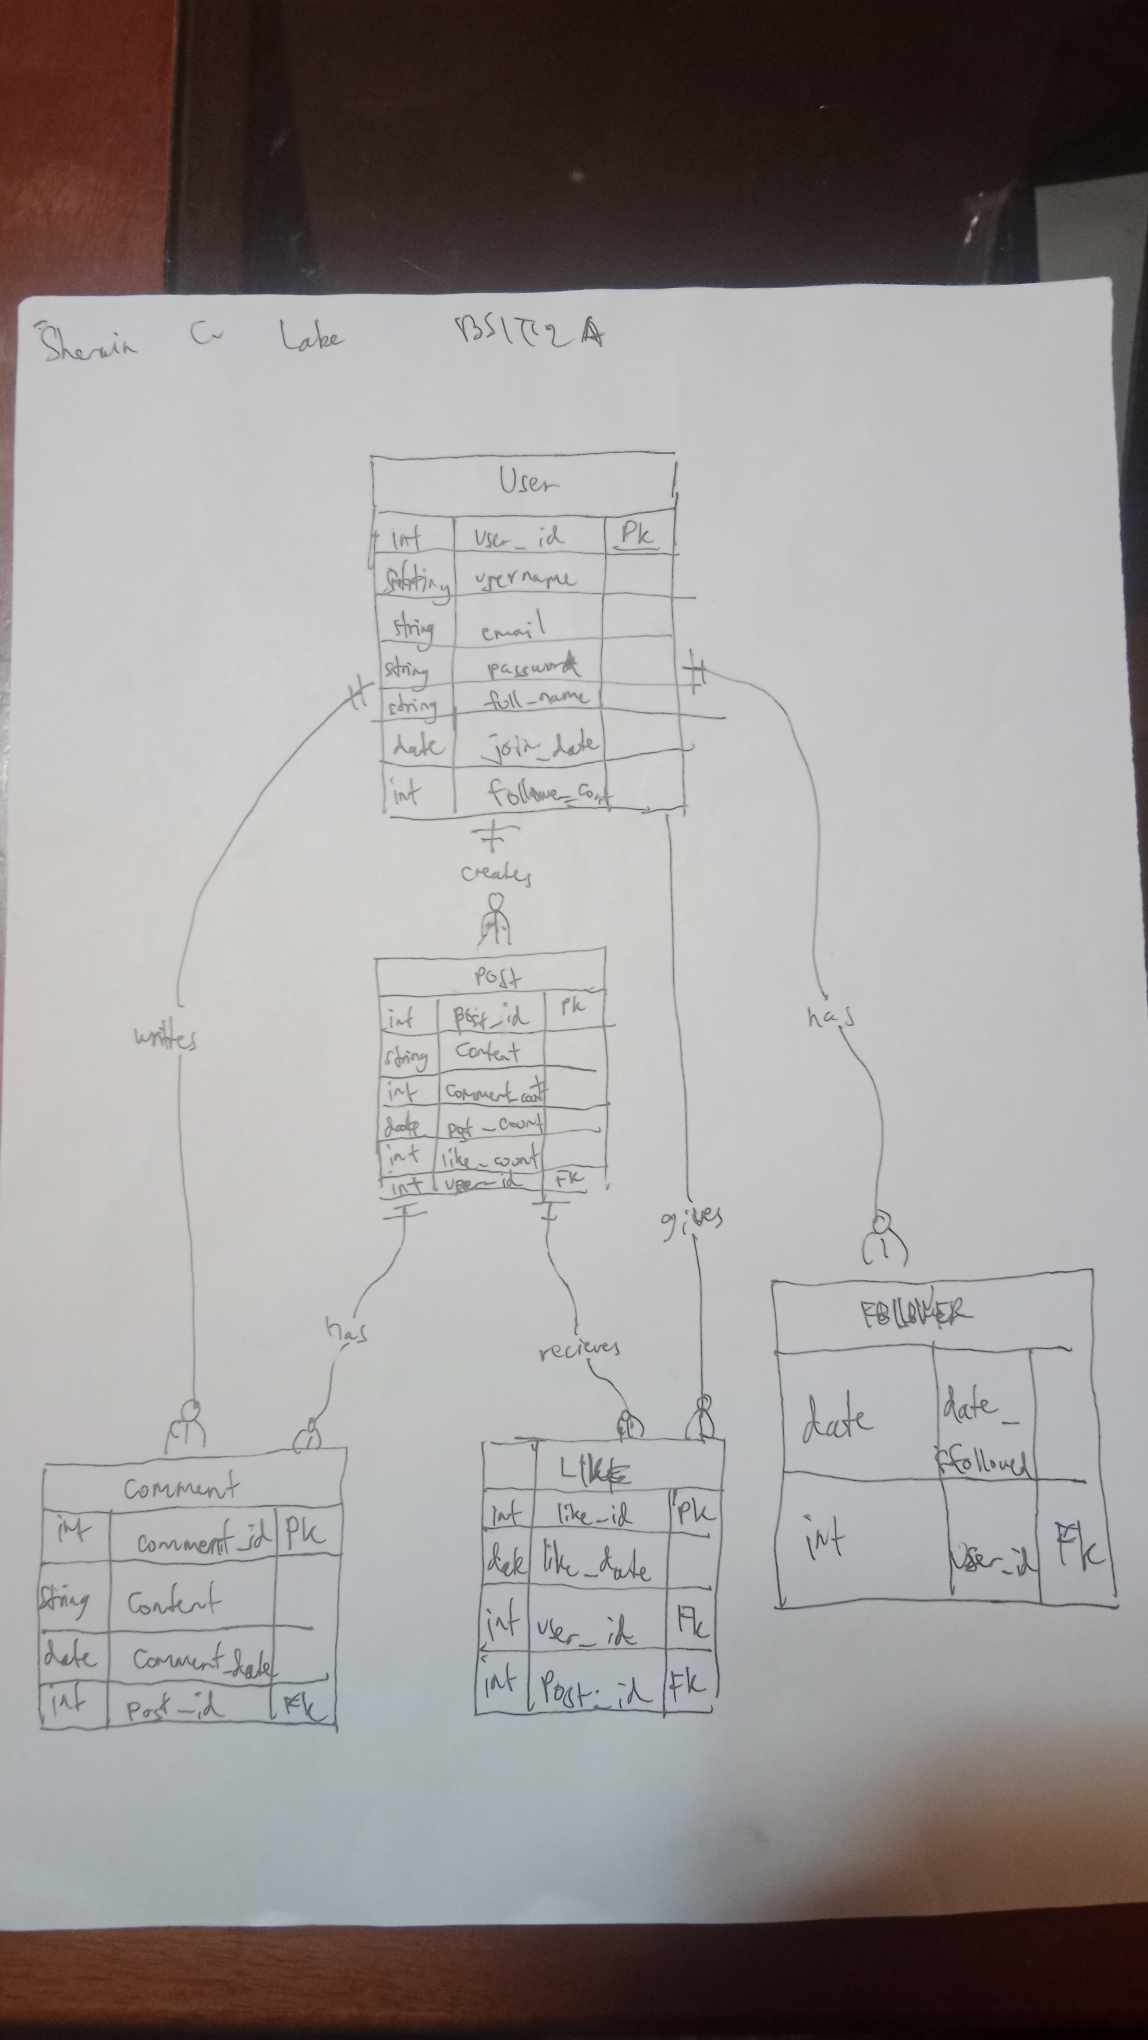 Sherwin C. Lake BSIT2A
User
int user_id Pk
string username
string email
string password
string full_name
date join_date
int
creates
Post
int post_id Pk
string Content
int comment_count
date post_count
int like_count
int user_id FK
writes
has
gives
has
recieves
Comment
int comment_id Pk
string Content
date Comment_date
int Post_id Fk
LIKE
int like_id Pk
date like_date
int user_id Fk
int Post_id Fk
FOLLOWER
date date_
followed
int user_id Fk